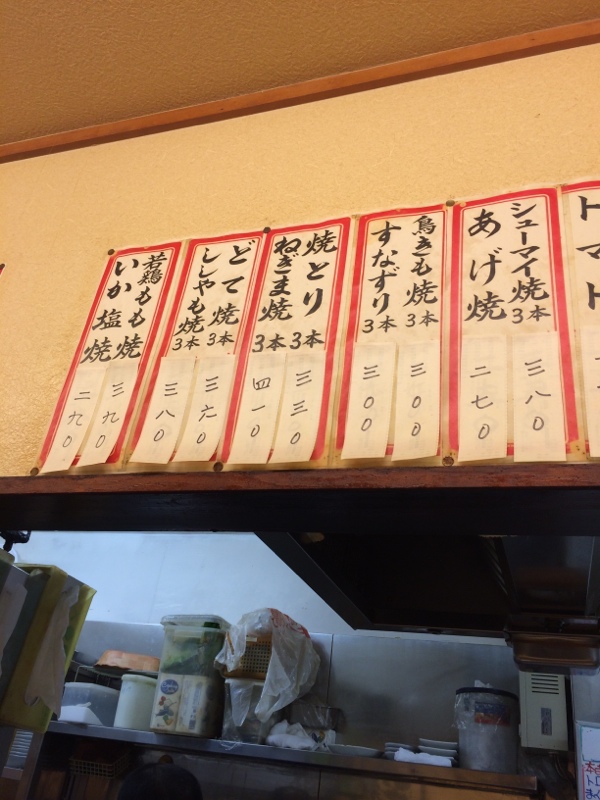 トマト
シューマイ焼 3本
三八0
あげ焼
二七0
鳥きも焼 3本
三00
すなずり 3本
三00
焼とり 3本
三三0
ねぎま焼 3本
四一0
どて焼 3本
三六0
ししゃも焼 3本
三八0
若鶏もも焼
三九0
いか塩焼
二九0